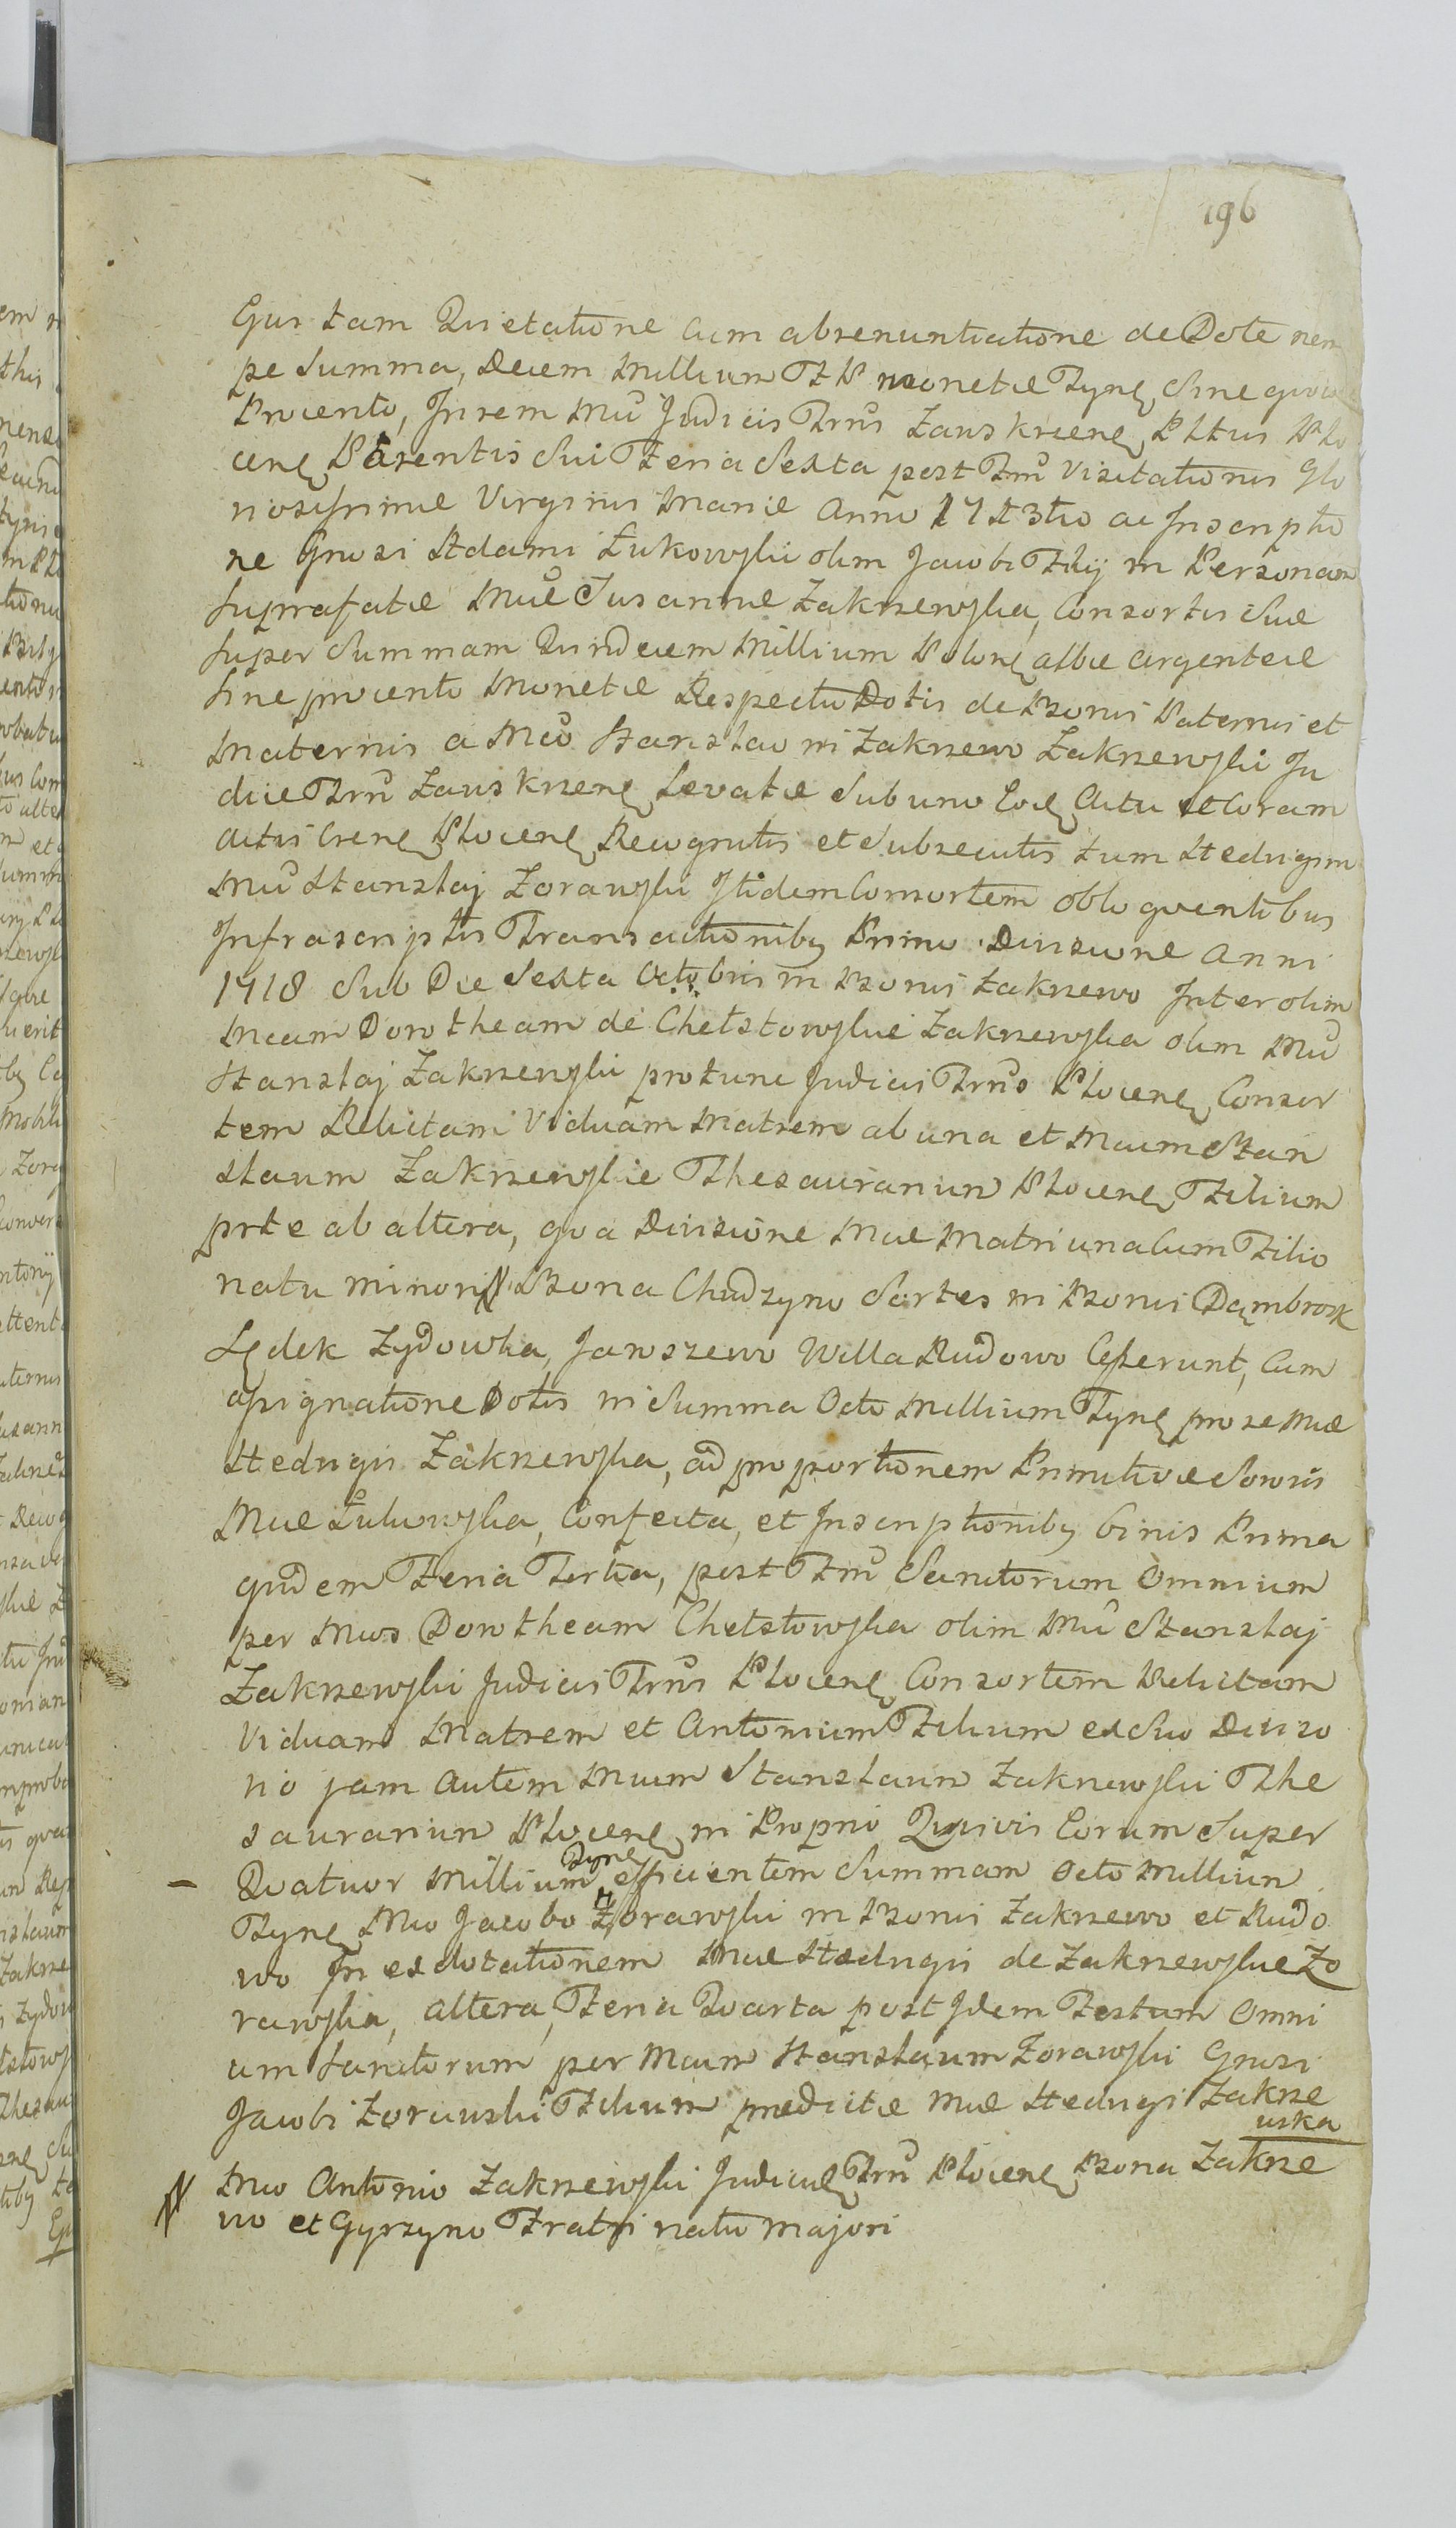 196
Ejus tam Quietatione cum abrenuntiatione de Dote nem
pe Summa, Decem Millium FP monetæ Tynę, Sine quovis
Procento, In rem Mci Judicis Trris Zauskrcenę PLtus Plo
cenę Parentis Sui Feria Sexta post Ftm Visitationis Glo
riosissimæ Virginis Mariæ Anno 1713tio ac Inscriptio
ne Gnosi Adami Łukowski olim Jacobi Flij in Personam
Suprafatæ Mcæ Susannæ Zakrzewska, Consortis Suæ
super Summam Quindecem Millium Polonę albæ argenteæ
sine procento Monetæ Respectu Dotis de Bonis Paternis et
Maternis a Mco Stanislao in Zakrzewo Zakrzewski Ju
dice Trri Zauskrzenę Levatæ Sub uno Eoę Actu et Coram
actis Crenę Plocenę Recognitis et Subsecutis tum Hedvigim
Mci Stanislaj Zorawski Itidem Consortem obloquentibus
Infrascriptis Transactioniby Primo Divisione Anni
1718 Sub Die Sexta Octobris in Bonis Zakrzewo Inter olim
Mcam Dorotheam de Chełstowskie Zakrzewska olim Mci
Stanislaj Zakrzewski protunc Judicis Trris Plocenę Consor
tem Relictam Viduam Matrem ab una et Mcum Stan
slaum Zakrzewskie Thesaurarium Plocenę Filium
prte ab altera, qua Divisione Mcæ Matri una cum Filio
natu minori # Bona Chudzyno Sortes in Bonis Dąmbrosk
Lędek Zydowka, Jaroszewo Willa Rudowo Cesserunt, Cum
assignatione Dotis in Summa Octo Millium Tynę pro se Mcæ
Hedvigis Zakrzewska, ad proportionem Primitivæ Sororis
Mcæ Łukowska, Confecta, et Inscriptioniby binis Prima
quidem Feria Tertia, post Ftm Sanctorum Omnium
per Mcos Dorotheam Chełstowska olim Mci Stanslaj
Zakrzewski Judicis Trris Plocenę Consortem Relictam
Viduam Matrem et Antonium Filium ex Suo Diviso
rio jam autem Mcum Stanslaum Zakrzewski The
saurarium Plocenę in Proprio Quivis Eorum Super
– Quatuor Millium Tynę efficientem Summam Octo Millium
Tynę Mco Jacobo Zorawski in Bonis Zakrzewo et Rudo
wo In exdotationem Mcæ Hedvigis de Zakrzewskie Zo
rawska, altera, Feria Quarta post Idem Festum Omni
um Sanctorum per Mcum Stanslaum Zorawski Gnosi
Jacobi Zorawski Filium prædictæ Mcæ Hedvigi Zakrze
wska
# Mco Antonio Zakrzewski Judicidę Trri Plocenę Bona Zakrze
wo et Gyrzyno Fratri natu majori